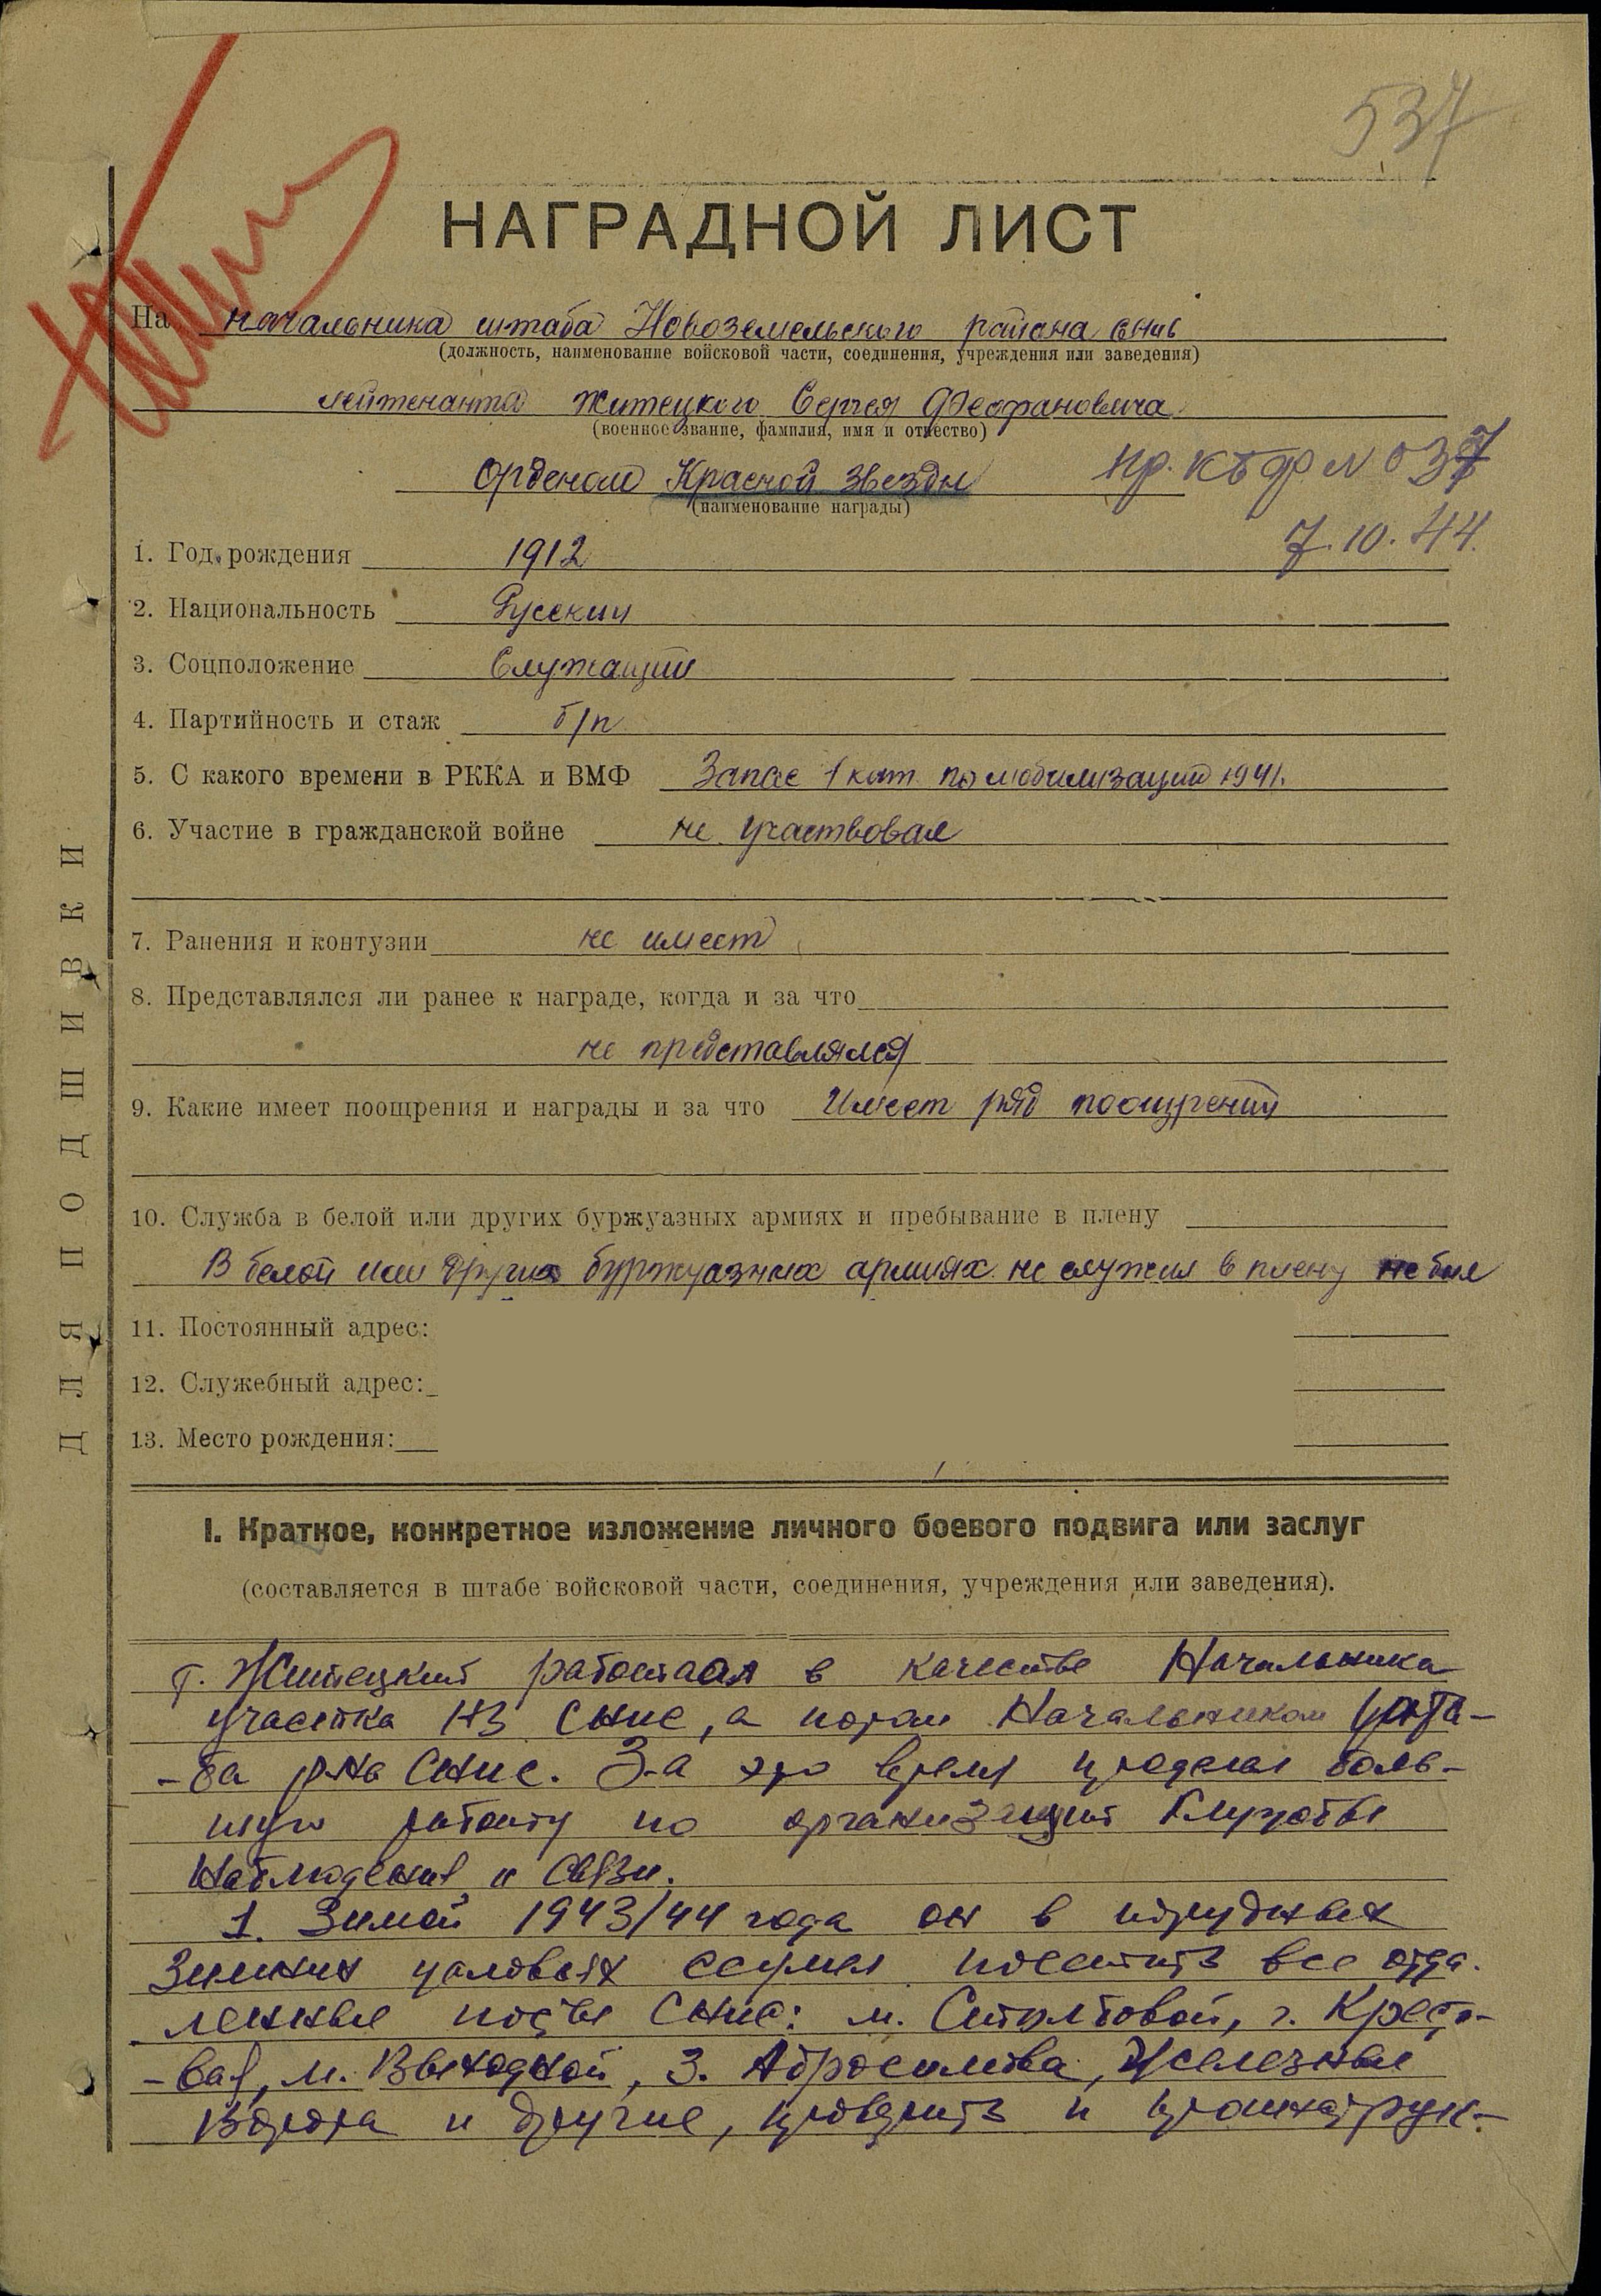 537
НАГРАДНОЙ ЛИСТ
На начальника штаба Новоземельского района СНиС
(должность, наименование войсковой части, соединения, учреждения или заведения)
лейтенанта Житецкого Сергея Феофановича
(военное звание, фамилия, имя и отчество)
Орденом Красной Звезды пр. КБФл N 037
(наименование награды)
7.10.44.
1. Год рождения 1912
2. Национальность Русский
3. Соцположение Служащий
4. Партийность и стаж б/п
5. С какого времени в РККА и ВМФ Запас 1 кат. по мобилизации 1941.
6. Участие в гражданской войне не участвовал
7. Ранения и контузии не имеет
8. Представлялся ли ранее к награде, когда и за что
не представлялся
9. Какие имеет поощрения и награды и за что Имеет ряд поощрений
10. Служба в белой или других буржуазных армиях и пребывание в плену
В белой или других буржуазных армиях не служил в плену не был
11. Постоянный адрес:
12. Служебный адрес:
13. Место рождения:
I. Краткое, конкретное изложение личного боевого подвига или заслуг
(составляется в штабе войсковой части, соединения, учреждения или заведения).
т. Житецкий работал в качестве Начальника
участка НЗ СНиС, а потом Начальником шта-
-ба р-на СНиС. За это время проделал боль-
шую работу по организации Службы
Наблюдения и Связи.
1. Зимой 1943/44 года он в трудных
Зимних условиях сумел посетить все отда-
ленные посты СНиС: м. Столбовой, г. Кресто-
-вая, м. Выходной, З. Абросимова, Железные
Ворота и другие, проверить и проинструк-
ДЛЯ ПОДШИВКИ